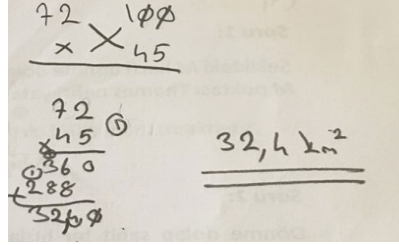 72 100
x 45
72
x45 1
1
360
+288
3240
32,4 km²